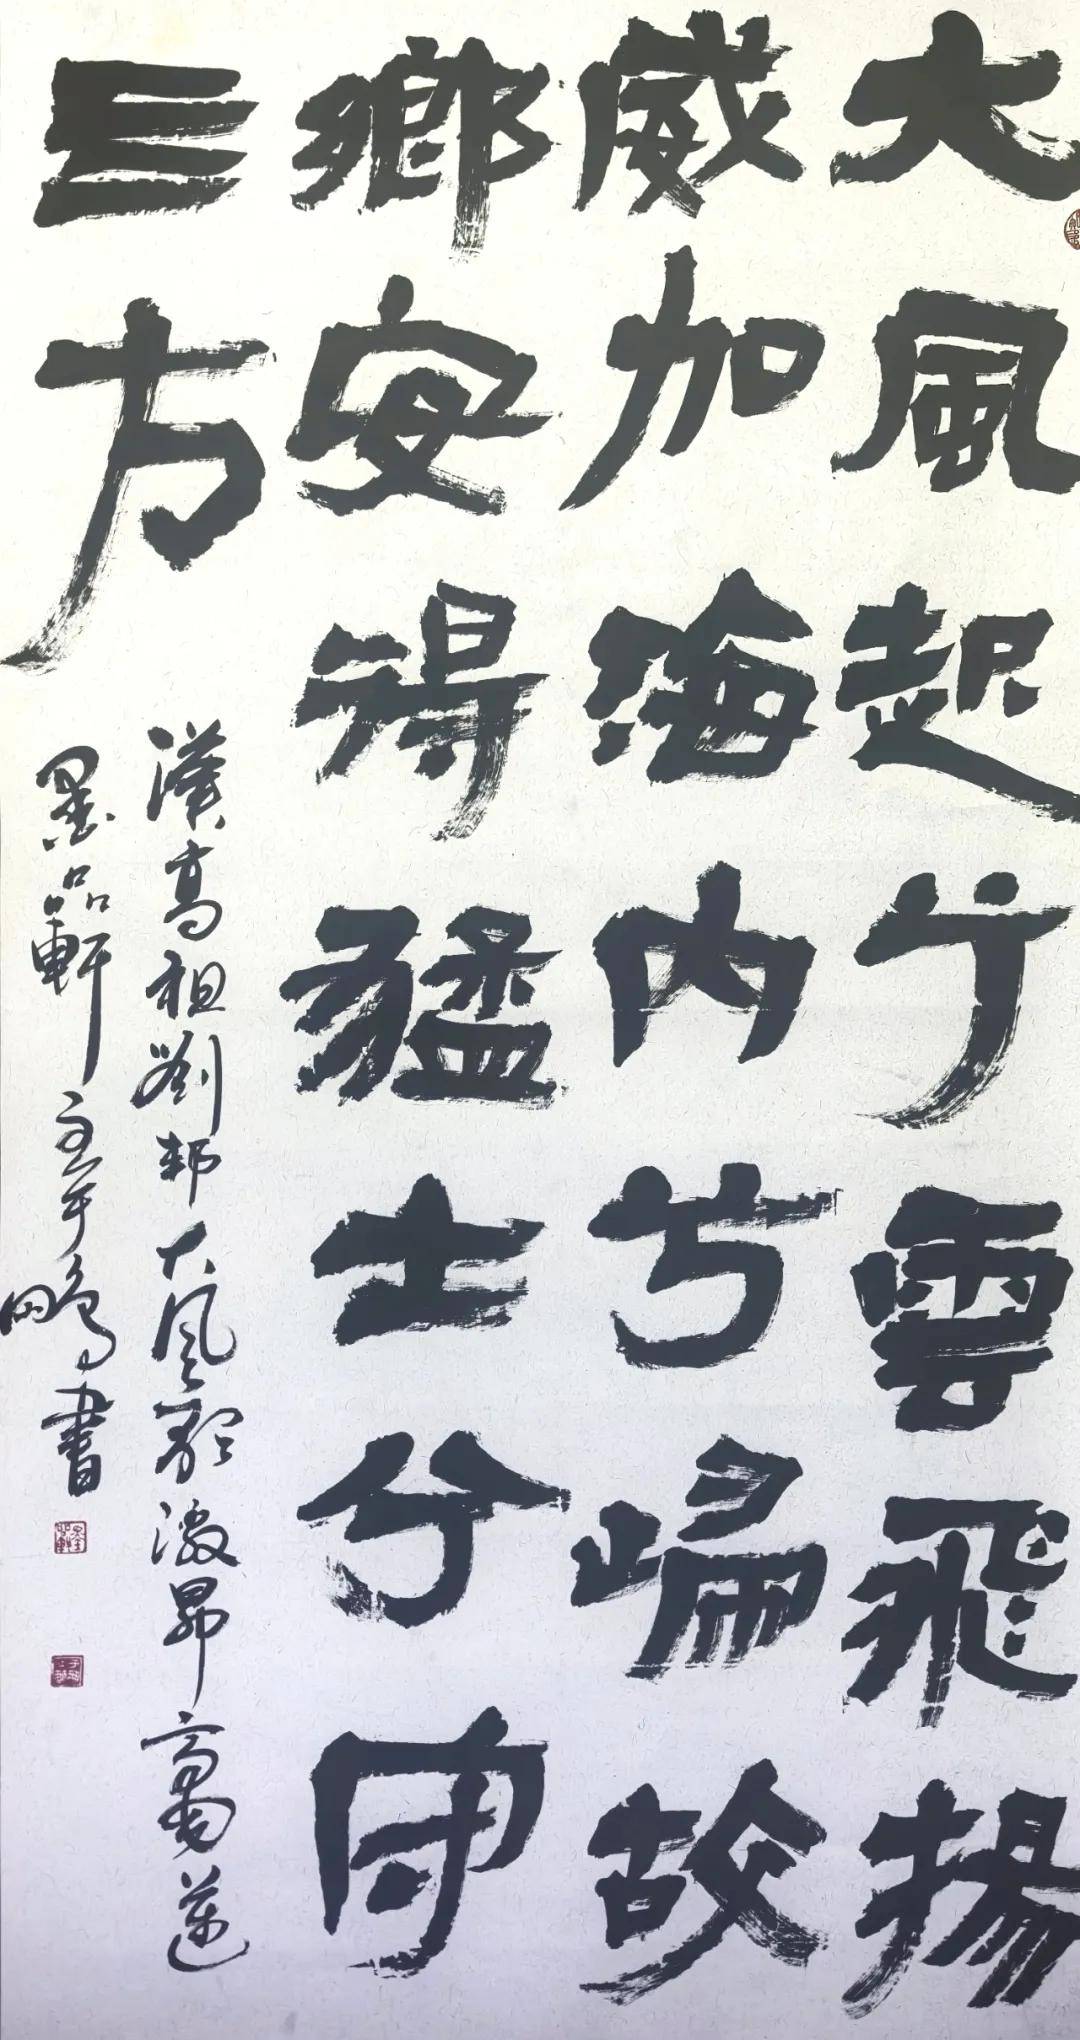 大風起兮雲飛揚
威加海内兮歸故
鄉安得猛士兮守
亖方
漢高祖劉邦大風歌激昂豪邁
墨品軒主于鵬書